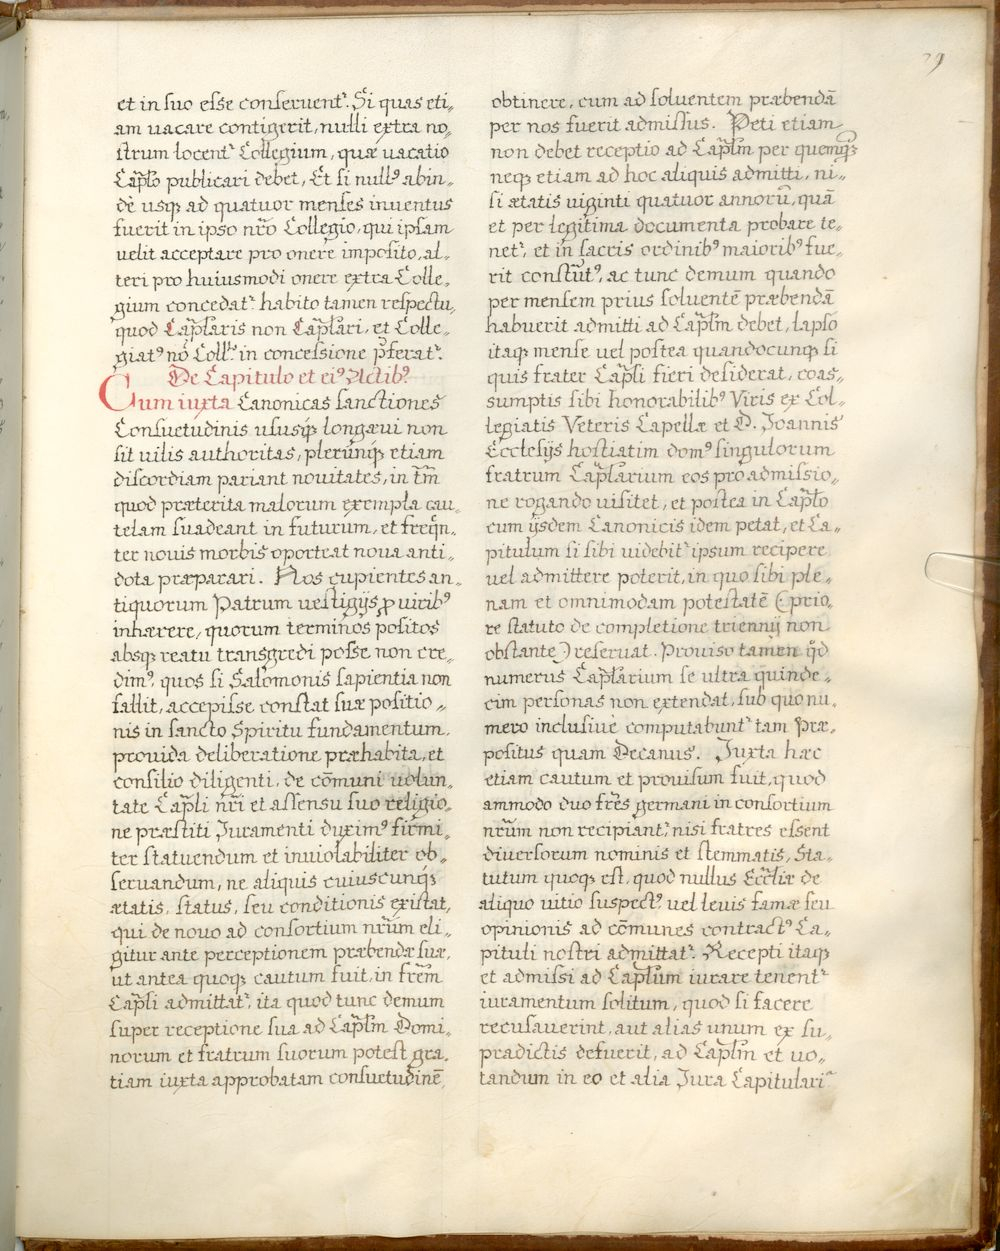 29
et in suo esse conseruentr. Si quas eti„
am uacare contigerit, nulli extra no„
strum locentr Collegium, quæ uacatio
Caplo publicari debet, Et si nullꝰ abin„
dè usqꝫ ad quatuor menses inuentus
fuerit in ipso nr̃o Collegio, qui ipsam
uelit acceptare pro onere imposito, al„
teri pro huiusmodi onere extra Colle„
gium concedatr. habito tamen respectu,
quod Capl̃aris non Capl̃ari, et Colle„
giatꝰ nõ Coll.ꝰ in concessione p̃feratr.
De Capitulo et eiꝰ Actibꝰ.
Cum iuxta Canonicas sanctiones
Consuetudinis ususqꝫ longæui non
sit uilis authoritas, plerúnqꝫ etiam
discordiam pariant nouitates, in tm̃
quod præterita malorum exempla cau„
telam suadeant in futurum, et freq̃n„
ter nouis morbis oporteat noua anti„
dota præparari. Nos cupientes an„
tiquorum Patrum uestigijs ꝓ uiribꝰ
inhærere, quorum terminos positos
absqꝫ reatu transgredi posse non cre„
dimꝰ, quos si Salomonis sapientia non
fallit, accepisse constat suæ positio„
nis in sancto Spiritu fundamentum,
prouida deliberatione præhabita, et
consilio diligenti, de cõmuni uolun„
tate Capl̃i nr̃i et assensu suo religio„
ne præstiti Juramenti duximꝰ firmi„
ter statuendum et inuiolabiliter ob„
seruandum, ne aliquis cuiuscunqꝫ
ætatis, status, seu conditionis existat,
qui de nouo ad consortium nr̃um eli„
gitur ante perceptionem præbendæ suæ,
ut antea quoqꝫ cautum fuit, in fr̃em
Capl̃i admittatr, ita quod tunc demum
super receptione sua ad Capl̃m Domi„
norum et fratrum suorum potest gra„
tiam iuxta approbatam consuetudinẽ
obtinere, cum ad soluentem præbendã
per nos fuerit admissus. Peti etiam
non debet receptio ad Capl̃m per quemqꝫ
neqꝫ etiam ad hoc aliquis admitti, ni„
si ætatis uiginti quatuor annorũ, quã
et per legitima documenta probare te„
netr, et in sacris ordinibꝰ maioribꝰ fue„
rit constit̃utꝰ, ac tunc demum quando
per mensem prius soluentẽ præbendã
habuerit admitti ad Capl̃m debet, lapso
itaqꝫ mense uel postea quandocunqꝫ si
quis frater Capl̃i fieri desiderat, coas„
sumptis sibi honorabilibꝰ Viris ex Col„
legiatis Veteris Capellæ et D. Joannis
Ecclesijs hostiatim domꝰ singulorum
fratrum Capl̃arium eos pro admissio„
ne rogando uisitet, et postea in Capl̃o
cum ijsdem Canonicis idem petat, et Ca„
pitulum si sibi uidebitr ipsum recipere
uel admittere poterit, in quo sibi ple„
nam et omnimodam potestatẽ (: prio„
re statuto de completione triennij non
obstante :) reseruat. Prouiso tamen q̃d
numerus Capl̃arium se ultra quinde„
cim personas non extendat, sub quo nu„
mero inclusiuè computabuntr tam Præ„
positus quam Decanus. Juxta hæc
etiam cautum et prouisum fuit, quod
ammodo duo fr̃es germani in consortium
nr̃um non recipiantr, nisi fratres essent
diuersorum nominis et stemmatis, Sta„
tutum quoqꝫ est, quod nullus Eccl̃iæ de
aliquo uitio suspectꝰ uel leuis famæ seu
opinionis ad cõmunes contractꝰ Ca„
pituli nostri admittatr. Recepti itaqꝫ
et admissi ad Capl̃um iurare tenentr
iuramentum solitum, quod si facere
recusauerint, aut alias unum ex su„
pradictis defuerit, ad Capl̃m et uo„
tandum in eo et alia Jura Capitulari